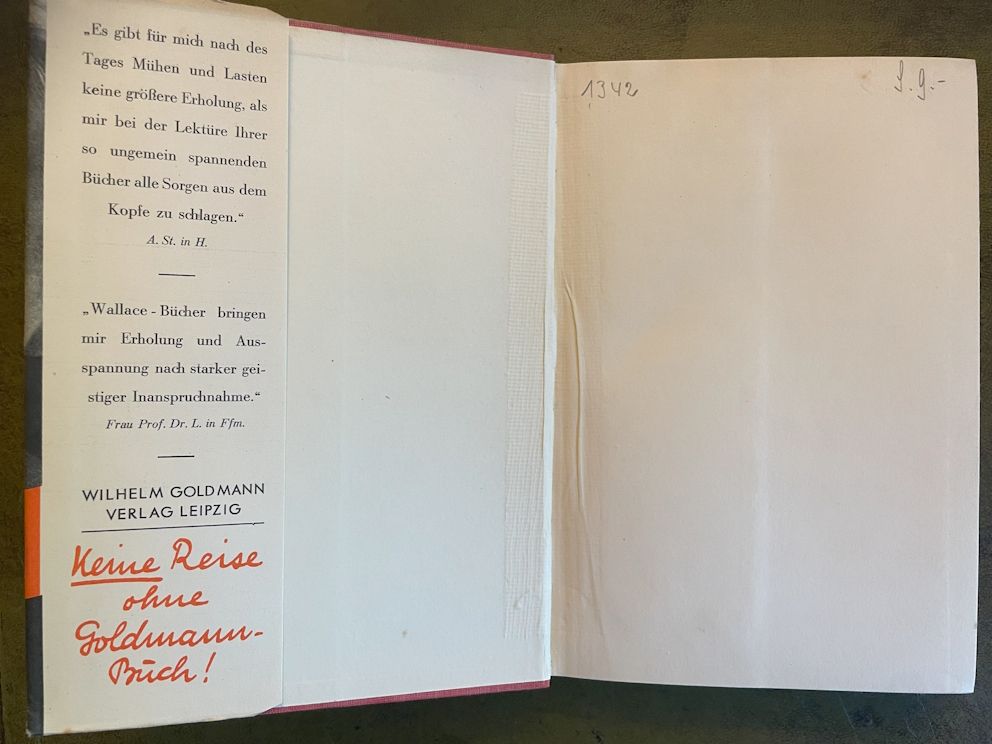 „Es gibt für mich nach des
Tages Mühen und Lasten
keine größere Erholung, als
mir bei der Lektüre Ihrer
so ungemein spannenden
Bücher alle Sorgen aus dem
Kopfe zu schlagen.“
A. St. in H.
„Wallace - Bücher bringen
mir Erholung und Aus-
spannung nach starker gei-
stiger Inanspruchnahme.“
Frau Prof. Dr. L. in Ffm.
WILHELM GOLDMANN
VERLAG LEIPZIG
Keine Reise
ohne
Goldmann-
Buch!
1342